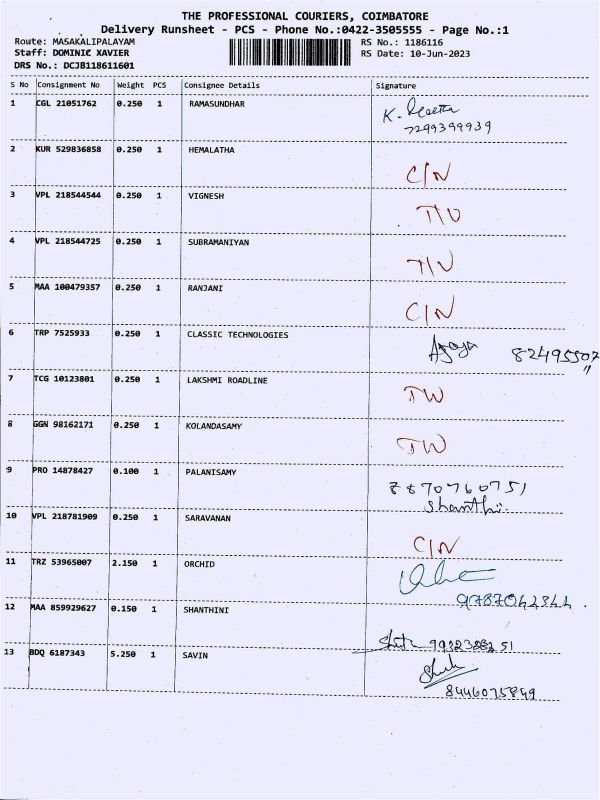 THE PROFESSIONAL COURIERS, COIMBATORE
Delivery Runsheet - PCS - Phone No.:0422-3505555 - Page No.:1
Route: MASAKALIPALAYAM RS No.: 1186116
Staff: DOMINIC XAVIER RS Date: 10-Jun-2023
DRS No.: DCJB118611601
S No Consignment No Weight PCS Consignee Details Signature
1 CGL 21051762 0.250 1 RAMASUNDHAR K.
7299399939
2 KUR 529836858 0.250 1 HEMALATHA
C/N
3 VPL 218544544 0.250 1 VIGNESH
T/U
4 VPL 218544725 0.250 1 SUBRAMANIYAN
T/U
5 MAA 100479357 0.250 1 RANJANI
C/N
6 TRP 7525933 0.250 1 CLASSIC TECHNOLOGIES
82495507
7 TCG 10123801 0.250 1 LAKSHMI ROADLINE
TW
8 GGN 98162171 0.250 1 KOLANDASAMY
TW
9 PRO 14878427 0.100 1 PALANISAMY
8870760751
Shanthi
10 VPL 218781909 0.250 1 SARAVANAN
C/N
11 TRZ 53965007 2.150 1 ORCHID
9787042344
12 MAA 859929627 0.150 1 SHANTHINI
13 BDQ 6187343 5.250 1 SAVIN
8446075849